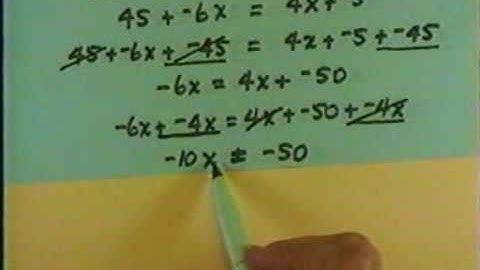 45 + -6x = 4x + -5
45 + -6x + -45 = 4x + -5 + -45
-6x = 4x + -50
-6x + -4x = 4x + -50 + -4x
-10x = -50